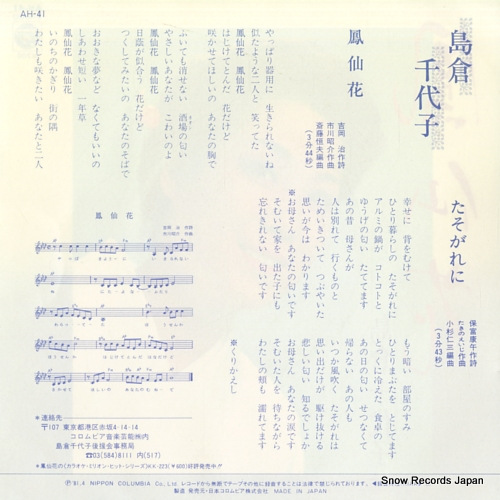 AH-41
島倉
千代子
鳳仙花
吉岡 治作詩
市川昭介作曲
斎藤恒夫編曲
(3分44秒)
やっぱり器用に 生きられないね
似たような二人と 笑ってた
鳳仙花 鳳仙花
はじけてとんだ 花だけど
咲かせてほしいの あなたの胸で
ふいても消せない 酒場の匂い
やさしいあなたが こわいのよ
鳳仙花 鳳仙花
日蔭が似合う 花だけど
つくしてみたいの あなたのそばで
おおきな夢など なくてもいいの
しあわせ短い 一年草
鳳仙花 鳳仙花
いのちのかぎり 街の隅
わたしも咲きたい あなたと二人
たそがれに
保富康午作詩
たきのえいじ作曲
小杉仁三編曲
(3分43秒)
幸せに 背をむけて
ひとり暮らしの たそがれに
アルミの鍋が コトコトと
ゆうげの匂い たててます
あの昔 母さんが
人は別れて 行くものと
ためいきついて つぶやいた
思いが今は わかります
※お母さん あなたの匂いです
そむいて家を 出た子にも
忘れきれない 匂いです
もう暗い 部屋のすみ
ひとりまぶたを とじてます
とっくに冷えた 食卓の
あの日の匂い せつなくて
帰らない あの人も
いつか風吹く たそがれは
思い出だけが 駆け抜ける
悲しい匂い 知るでしょか
お母さん あなたの涙です
そむいた人を 待ちながら
わたしの頬も 濡れてます
※くりかえし
鳳仙花
吉岡 治 作詩
市川昭介 作曲
★連絡先
〒107 東京都港区赤坂4-14-14
コロムビア音楽芸能㈱内
島倉千代子後援会事務局
☎03(584)8111 内(517)
★鳳仙花の〈カラオケ・ミリオン・ヒット・シリーズ〉KK-223(¥600)好評発売中!!
Ⓟ'81.4 NIPPON COLUMBIA Co., Ltd. レコードから無断でテープその他に録音することは法律で禁じられております。
製造 発売元・日本コロムビア株式会社 MADE IN JAPAN
Snow Records Japan